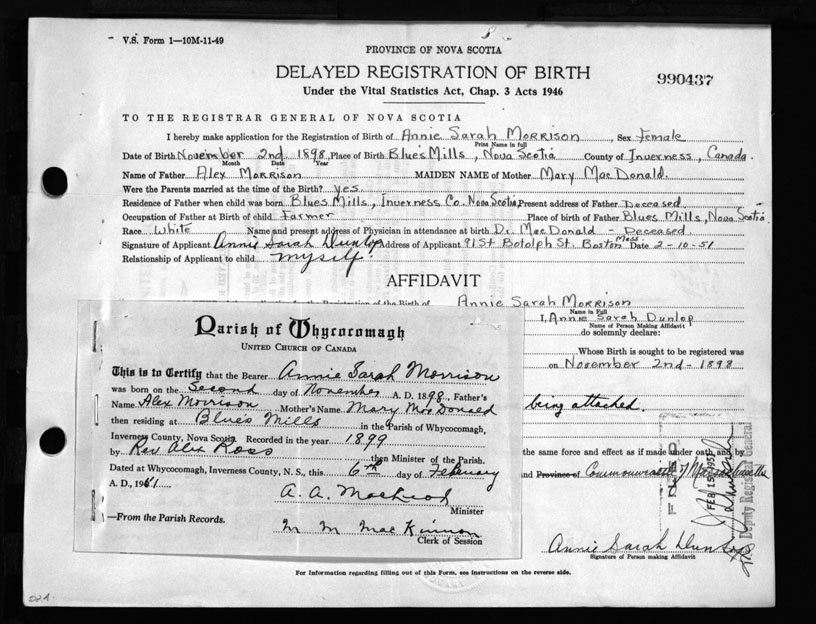 V.S. Form 1—10M-11-49
PROVINCE OF NOVA SCOTIA
DELAYED REGISTRATION OF BIRTH
990437
Under the Vital Statistics Act, Chap. 3 Acts 1946
TO THE REGISTRAR GENERAL OF NOVA SCOTIA
I hereby make application for the Registration of Birth of Annie Sarah Morrison, Sex Female
Print Name in full
Date of Birth November 2nd. 1898, Place of Birth Blues Mills, Nova Scotia County of Inverness, Canada.
Month Date Year
Name of Father Alex Morrison MAIDEN NAME of Mother Mary MacDonald.
Were the Parents married at the time of the Birth? yes
Residence of Father when child was born Blues Mills, Inverness Co. Nova Scotia, Present address of Father Deceased.
Occupation of Father at Birth of child Farmer Place of birth of Father Blues Mills, Nova Scotia.
Race White Name and present address of Physician in attendance at birth Dr. MacDonald - Deceased.
Signature of Applicant Annie Sarah Dunlop Address of Applicant 91 St Botolph St. Boston Mass. Date 2-10-51
Relationship of Applicant to child myself.
AFFIDAVIT
of the Birth of Annie Sarah Morrison
Name in Full
I, Annie Sarah Dunlop
Name of Person Making Affidavit
do solemnly declare:
Whose Birth is sought to be registered was
on November 2nd - 1898
being attached.
the same force and effect as if made under oath and by
and Province of Commonwealth of Massachusetts
FILED
FEB 15 1951
Deputy Registrar General
Annie Sarah Dunlop
Signature of Person making Affidavit
Parish of Whycocomagh
UNITED CHURCH OF CANADA
This is to Certify that the Bearer Annie Sarah Morrison
was born on the Second day of November A. D. 1898, Father's
Name Alex Morrison Mother's Name Mary MacDonald
then residing at Blues Mills in the Parish of Whycocomagh,
Inverness County, Nova Scotia, Recorded in the year 1899
by Rev Alex Ross then Minister of the Parish.
Dated at Whycocomagh, Inverness County, N. S., this 6th day of February
A. D., 1951.
A. A. MacLeod
Minister
—From the Parish Records.
M M MacKinnon
Clerk of Session
For Information regarding filling out of this Form, see instructions on the reverse side.